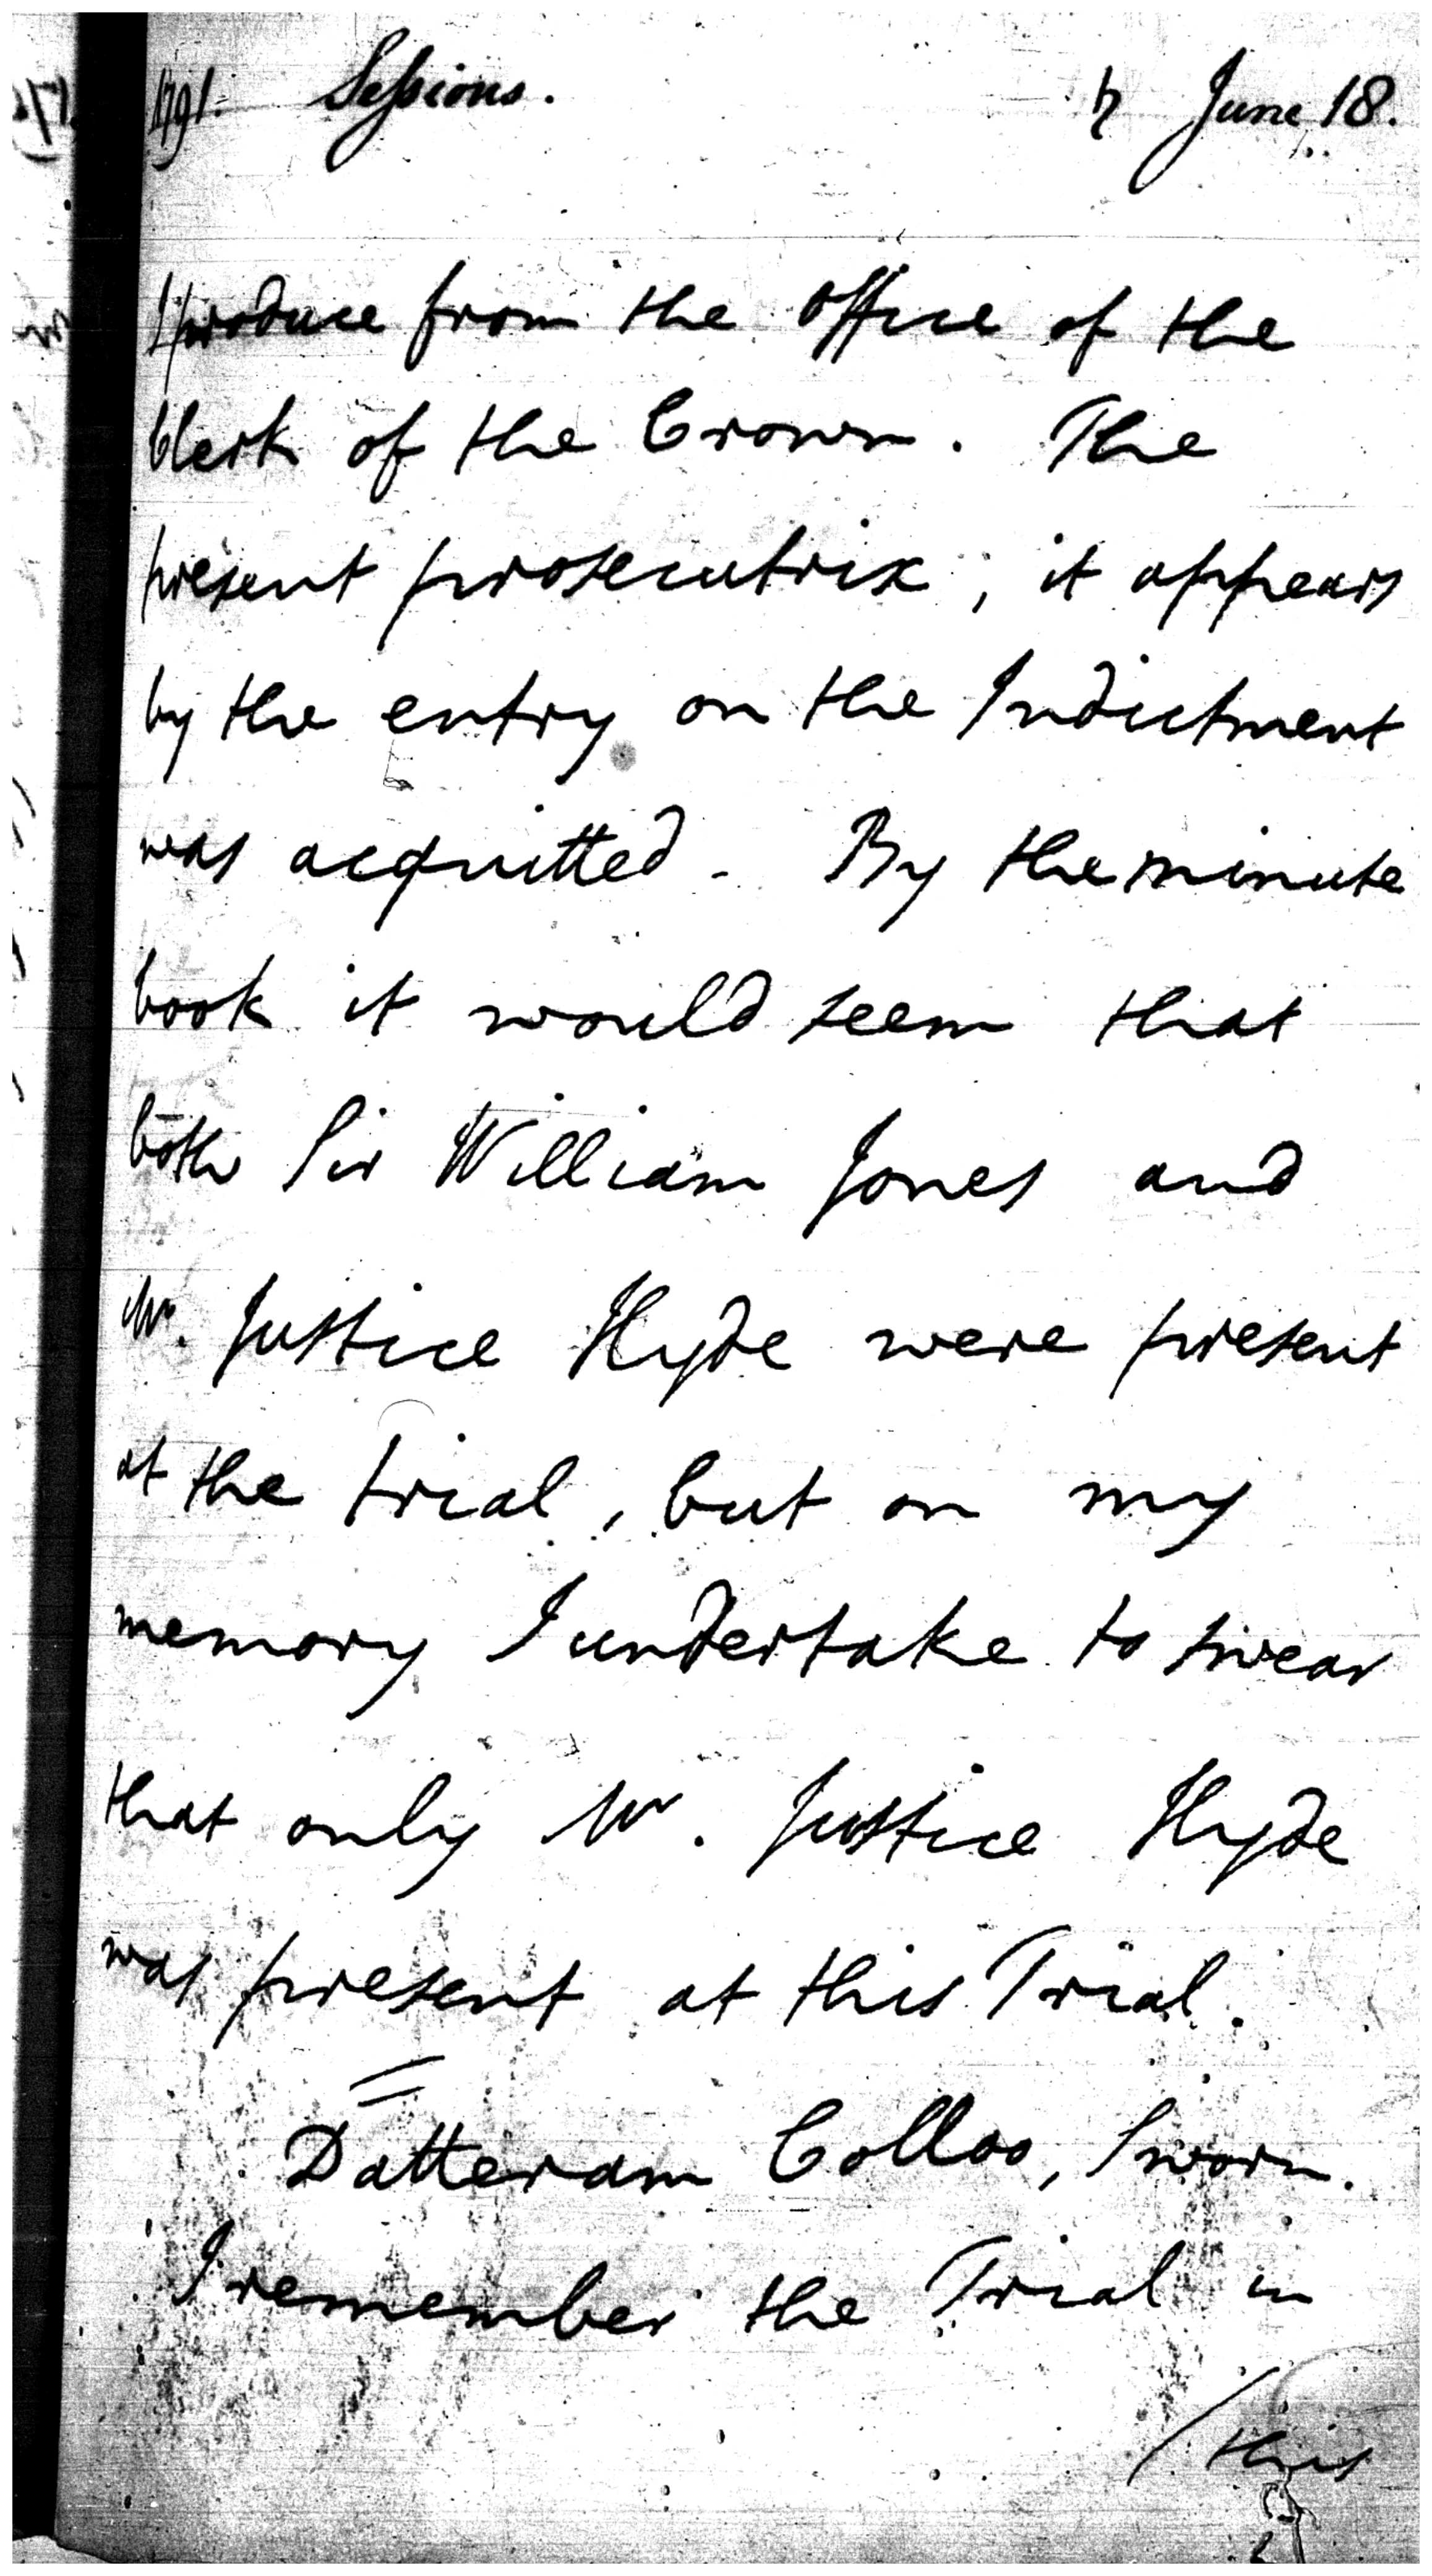 1791. Sessions. ♄ June 18.
I produce from the Office of the
Clerk of the Crown. The
present prosecutrix, it appears
by the entry on the Indictment
was acquitted. By the minute
book it would seem that
both Sir William Jones and
Mr. Justice Hyde were present
at the trial, but on my
memory I undertake to swear
that only Mr. Justice Hyde
was present at this Trial.
Datteram Colloo, Sworn.
I remember the Trial in
/ this